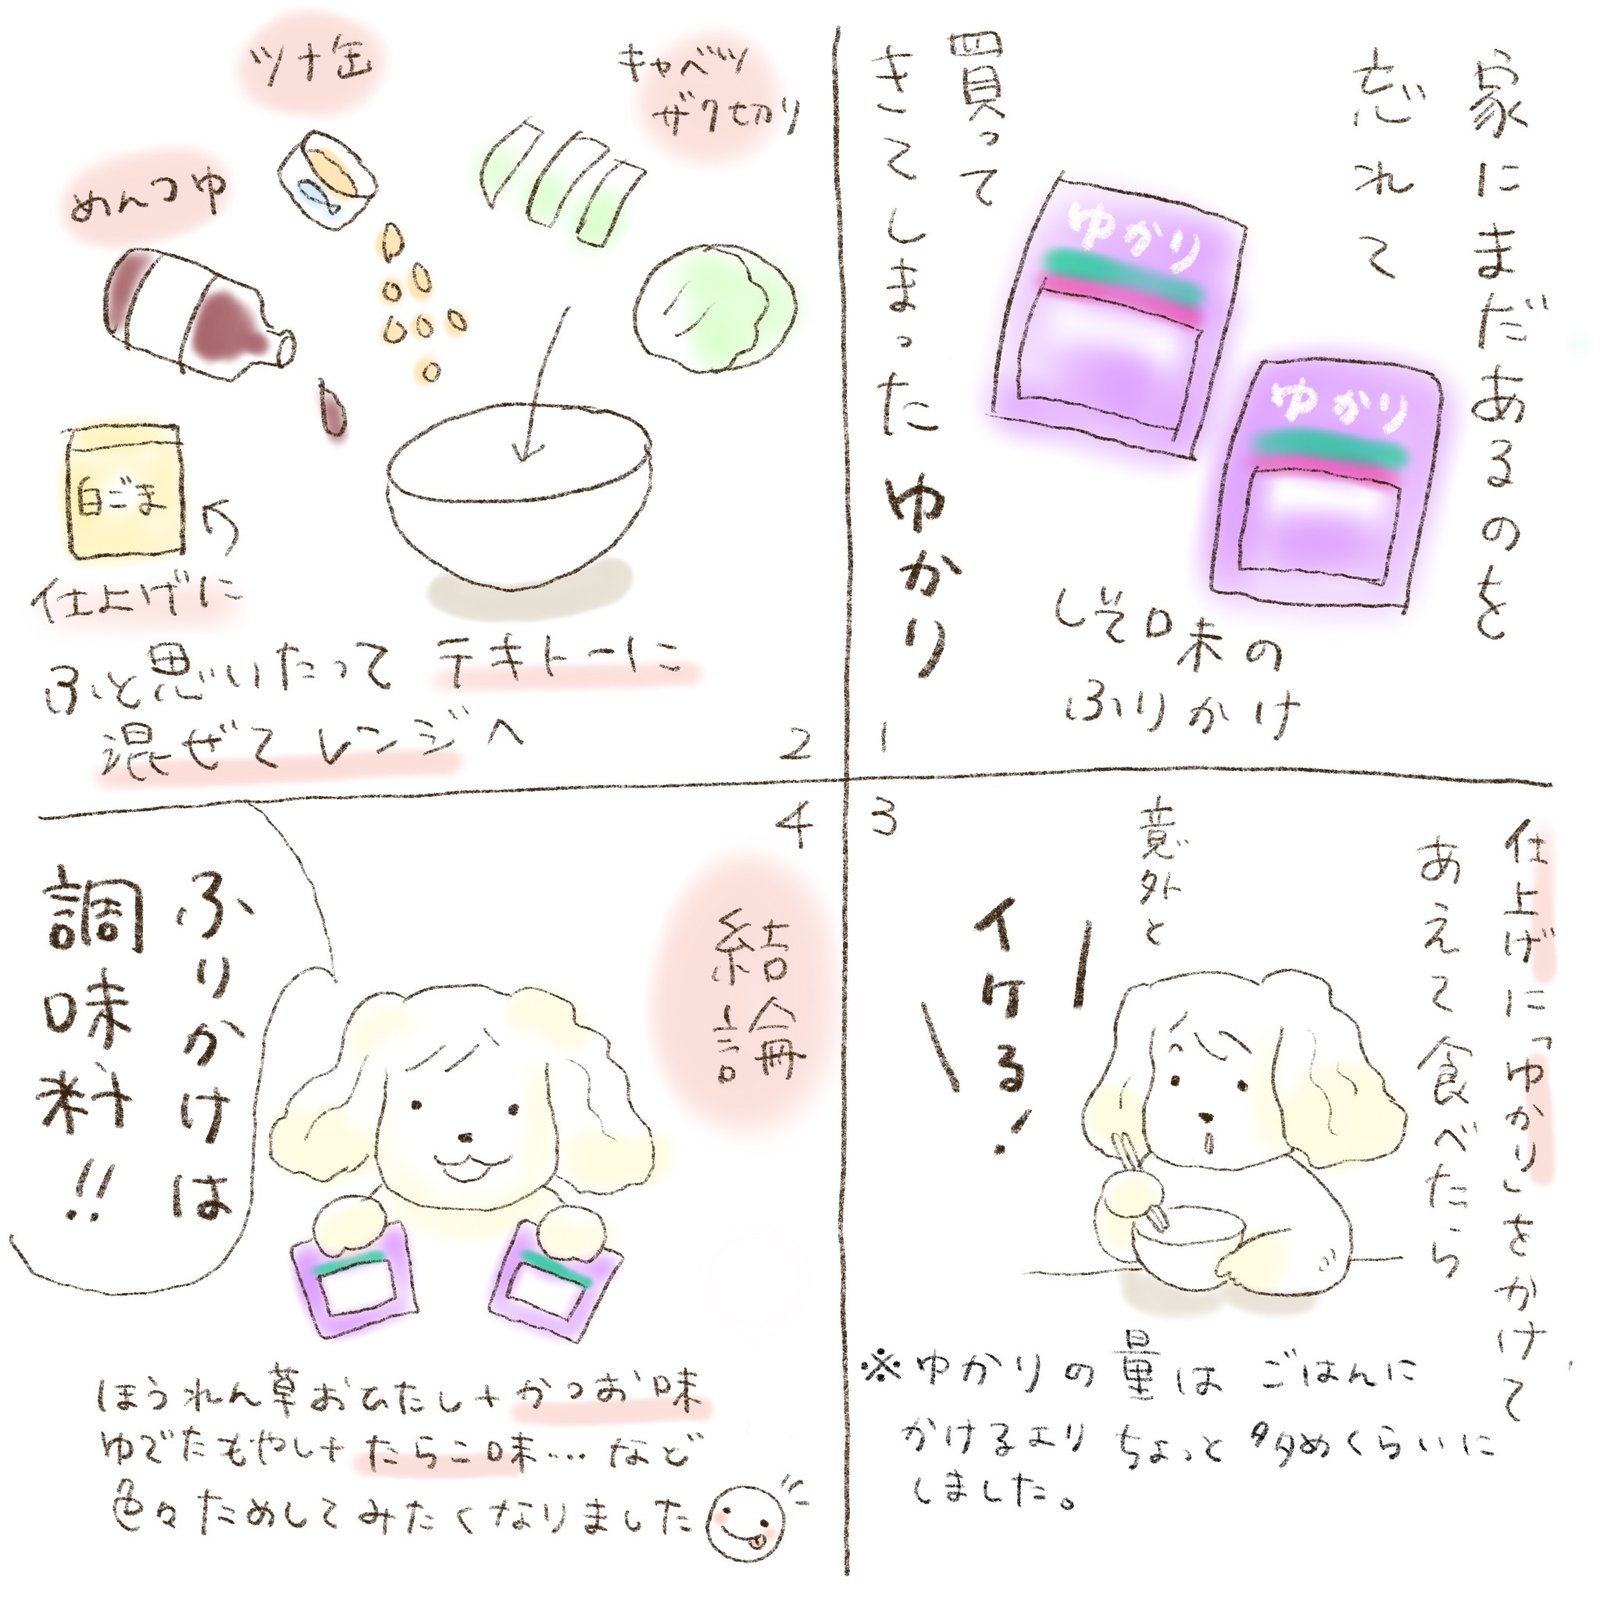 家にまだあるのを
忘れて
ゆかり
ゆかり
しそ味の
ふりかけ
買って
きてしまったゆかり
1
キャベツ
ザク切り
ツナ缶
めんつゆ
白ごま
仕上げに
ふと思いたって テキトーに
混ぜてレンジへ
2
3
仕上げに「ゆかり」をかけて
あえて食べたら
意外と
イケる!
※ゆかりの量は ごはんに
かけるより ちょっと多めくらいに
しました。
4
結論
ふりかけは
調味料!!
ほうれん草おひたし+かつお味
ゆでたもやし+たらこ味…など
色々ためしてみたくなりました